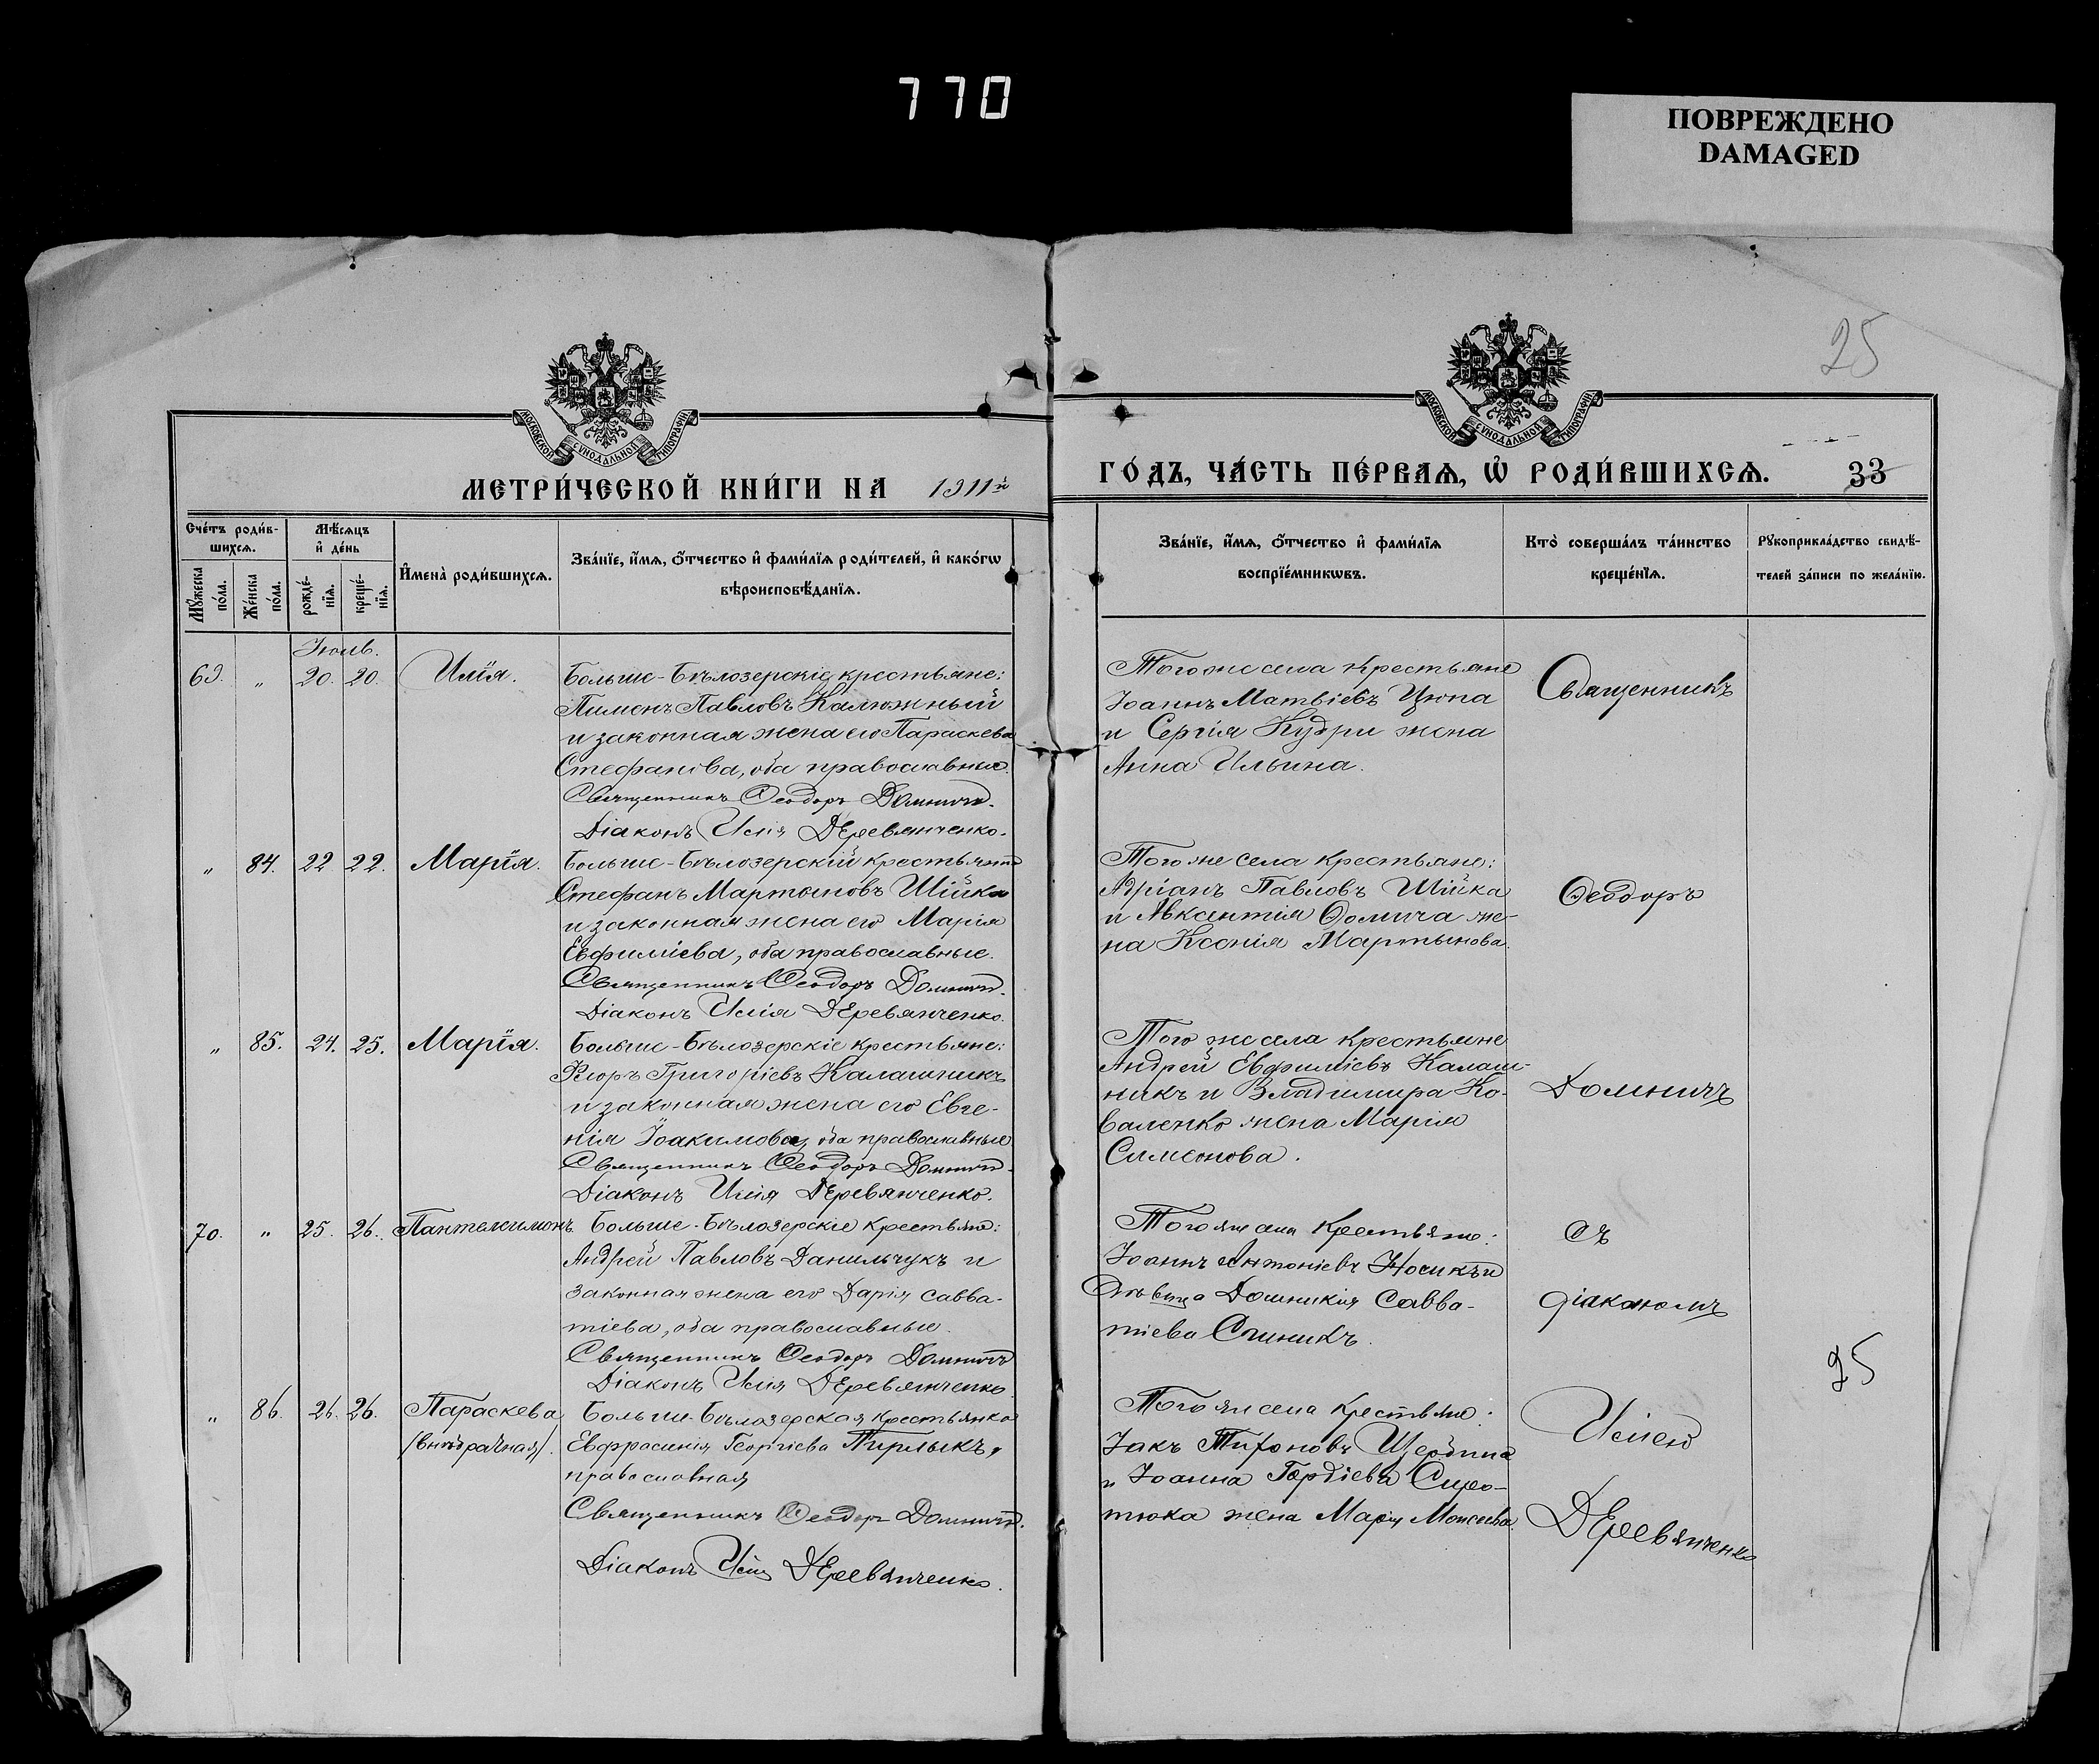 770
ПОВРЕЖДЕНО
DAMAGED
25
МОСКОВСКОЙ СУНОДАЛЬНОЙ ТИПОГРАФІИ
МОСКОВСКОЙ СУНОДАЛЬНОЙ ТИПОГРАФІИ
МЕТРИ́ЧЕСКОЙ КНИ́ГИ НА 1911й
ГО́ДЪ, ЧА́СТЬ ПЕ́РВАѦ, Ѡ҆ РОДИ́ВШИХСѦ. 33
Сче́тъ роди́в-
шихсѧ.
Мѣ́сѧцъ
и҆ де́нь
Мꙋ́жеска
по́ла.
Же́нска
по́ла.
рожде́-
нїѧ.
креще́-
нїѧ.
И҆мена̀ роди́вшихсѧ.
Зва́нїе, и҆́мѧ, ѻ҆́тчество и҆ фами́лїѧ роди́телей, и҆ како́гѡ
вѣроисповѣ́данїѧ.
Зва́нїе, и҆́мѧ, ѻ҆́тчество и҆ фами́лїѧ
воспрїе́мникѡвъ.
Кто̀ соверша́лъ та́инство
креще́нїѧ.
Рꙋкоприкла́дство свидѣ́-
телей за́писи по жела́нїю.
Іюль.
69. „ 20. 20. Илія.
Больше-Бѣлозерскіе крестьяне:
Пименъ Павловъ Калюжный
и законная жена его Параскева
Стефанова, оба православные.
Священникъ Ѳеодоръ Домничъ.
Діаконъ Илія Деревянченко.
Того же села крестьяне
Іоаннъ Матвіевъ Цюпа
и Сергія Кудри жена
Анна Ильина.
Священникъ
„ 84. 22 22. Марія.
Больше-Бѣлозерскій крестьянинъ
Стефанъ Мартыновъ Шійка
и законная жена его Марія
Евфиміева, оба православные.
Священникъ Ѳеодоръ Домничъ.
Діаконъ Илія Деревянченко.
Того же села крестьяне:
Адріанъ Павловъ Шійка
и Авксентія Ѳомича же-
на Ксенія Мартынова.
Ѳеодоръ
„ 85. 24. 25. Марія.
Больше-Бѣлозерскіе крестьяне:
Флоръ Григоріевъ Калашникъ
и законная жена его Евге-
нія Іоакимова, оба православные
Священникъ Ѳеодоръ Домничъ.
Діаконъ Илія Деревянченко.
Того же села крестьяне
Андрей Евфиміевъ Калаш-
никъ и Владимира Ко-
валенко жена Марія
Симеонова.
Домничъ
70. „ 25. 26. Пантелеимонъ.
Больше-Бѣлозерскіе крестьяне:
Андрей Павловъ Данильчукъ и
законная жена его Дарія Савва-
тіева, оба православные.
Священникъ Ѳеодоръ Домничъ
Діаконъ Илія Деревянченко.
Того же села крестьяне:
Іоаннъ Антоніевъ Носикъ и
Дѣвица Домникія Савва-
тіева Спиникъ.
съ
діакономъ
25
„ 86. 26. 26. Параскева
/внѣбрачная/.
Больше-Бѣлозерская крестьянка
Евфросинія Георгіева Пирлыкъ,
православная
Священникъ Ѳеодоръ Домничъ.
Діаконъ Илія Деревянченко.
Того же села крестьяне:
Іаковъ Щербина
и Іоанна Гордіева Сиро-
тюка жена Марія Моисеева.
Иліею
Деревянченко